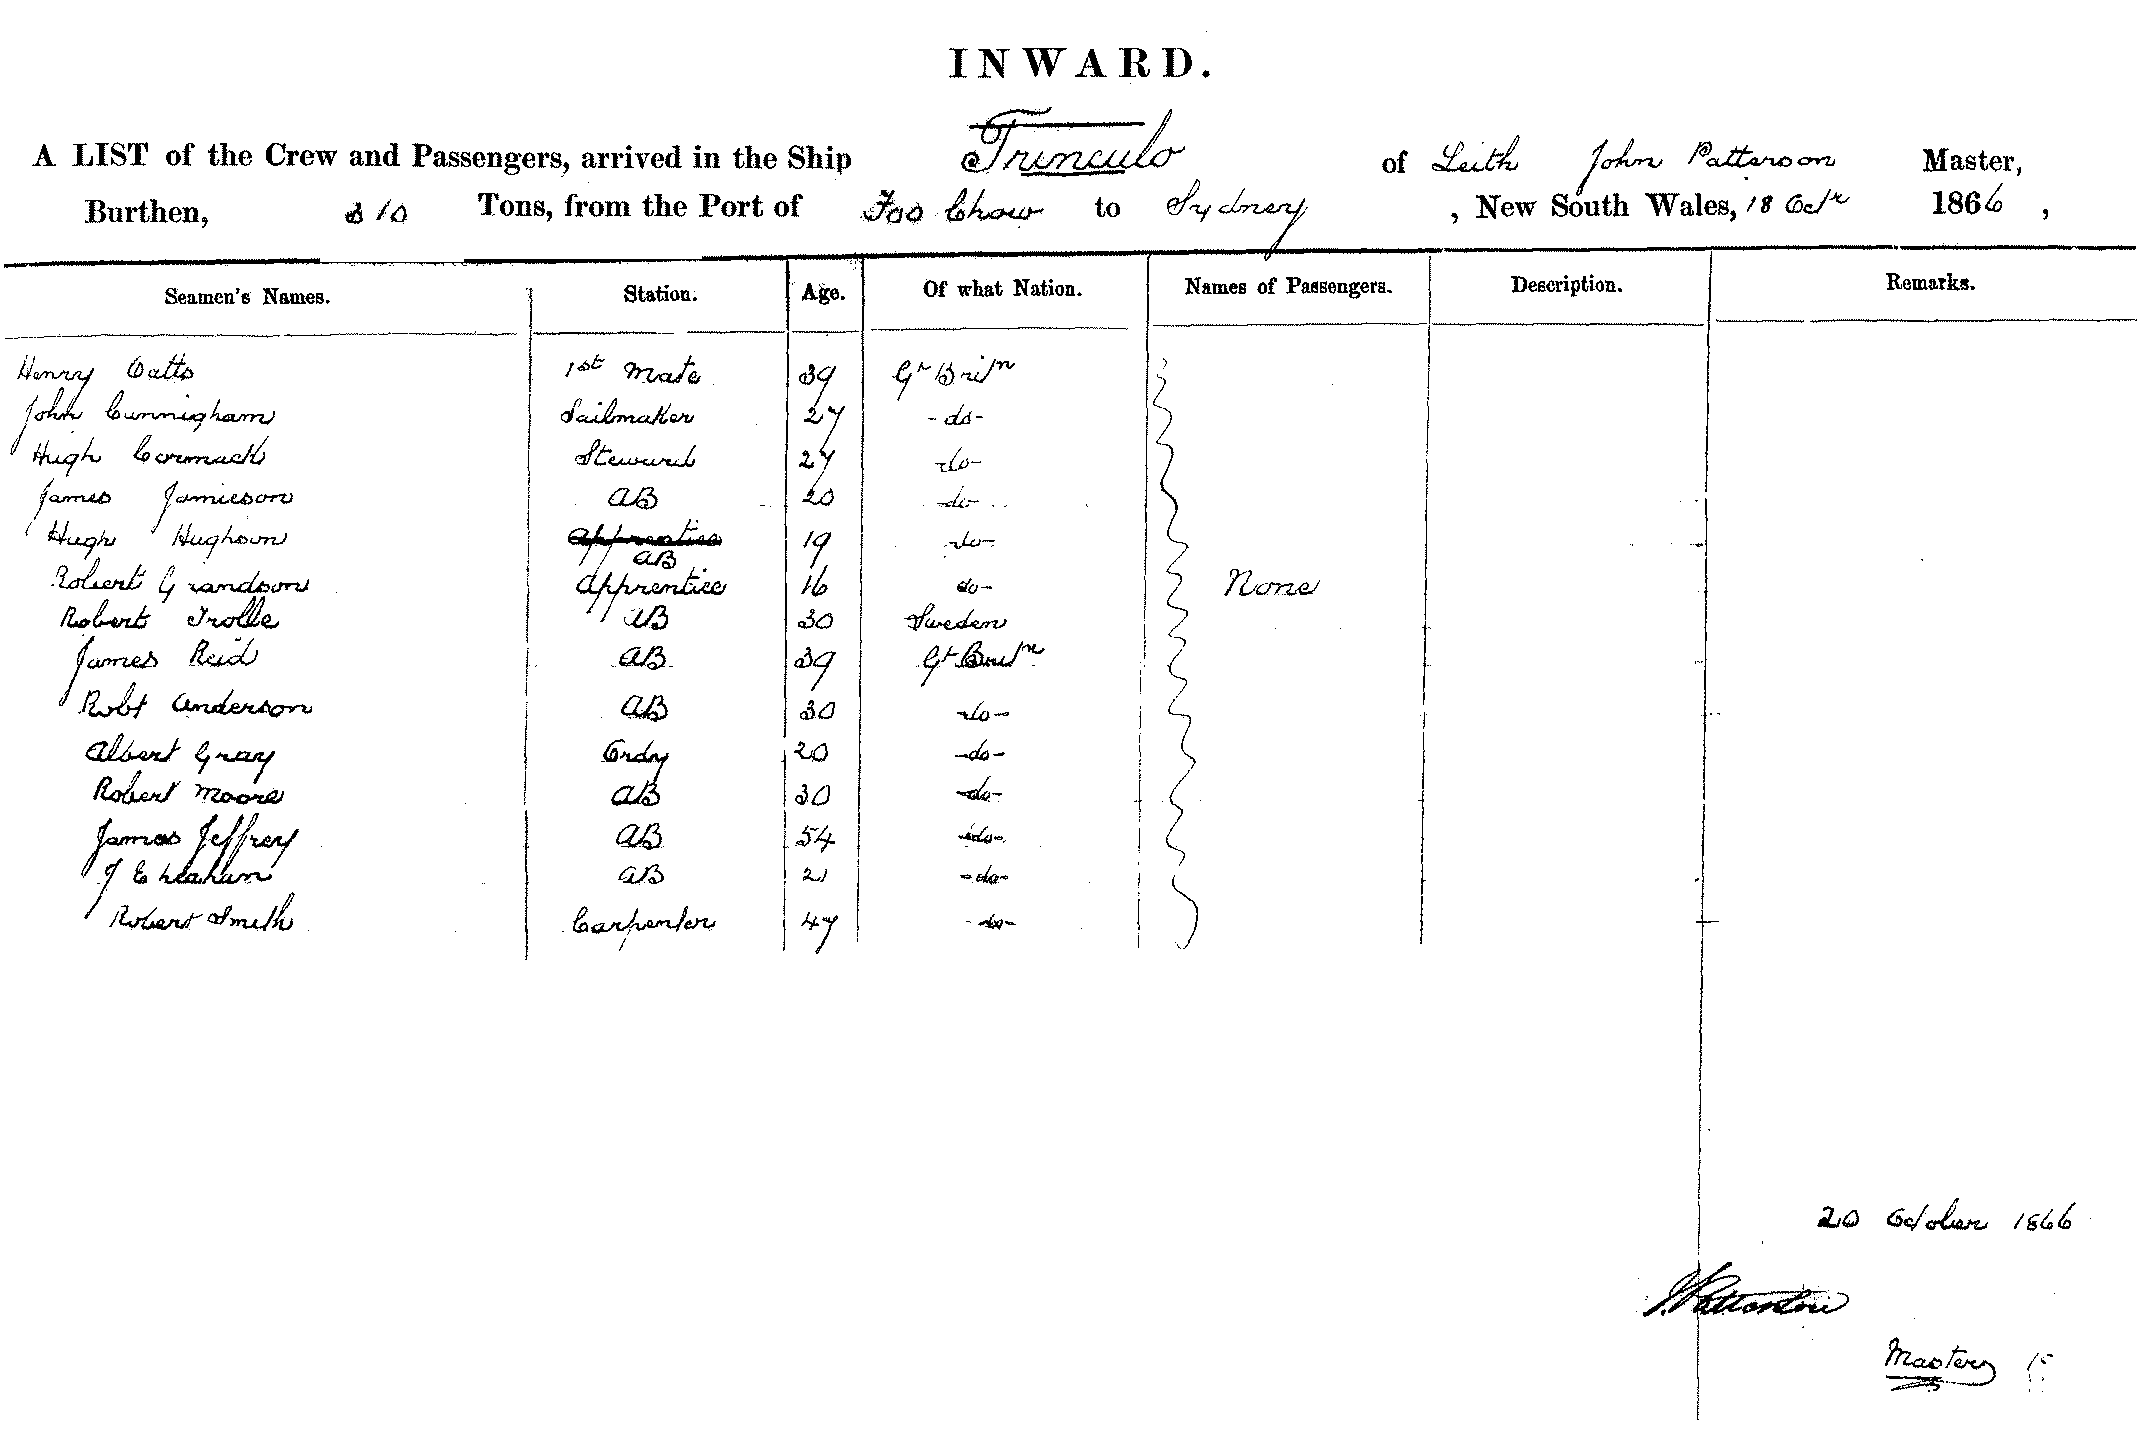 INWARD.
A LIST of the Crew and Passengers, arrived in the Ship Trinculo of Leith John Patterson Master,
Burthen, 310 Tons, from the Port of Foo Chow to Sydney , New South Wales, 18 Octr 1866 ,
Seamen's Names. Station. Age. Of what Nation. Names of Passengers. Description. Remarks.
Henry Oatts 1st Mate 39 Gt Britn
John Cunnigham Sailmaker 27 -do-
Hugh Cormack Steward 27 -do-
James Jamieson AB 20 -do-
Hugh Hughson AB 19 -do-
Robert Grandson Apprentice 16 do- None
Robert Trolle AB 30 Sweden
James Reid AB 39 Gt Britn
Robt Anderson AB 30 -do-
Albert Gray Ordy 20 -do-
Robert Moore AB 30 -do-
James Jeffrey AB 54 -do-
AB 21 -do-
Robert Smith Carpenter 47 -do-
20 October 1866
J. Patterson
Master